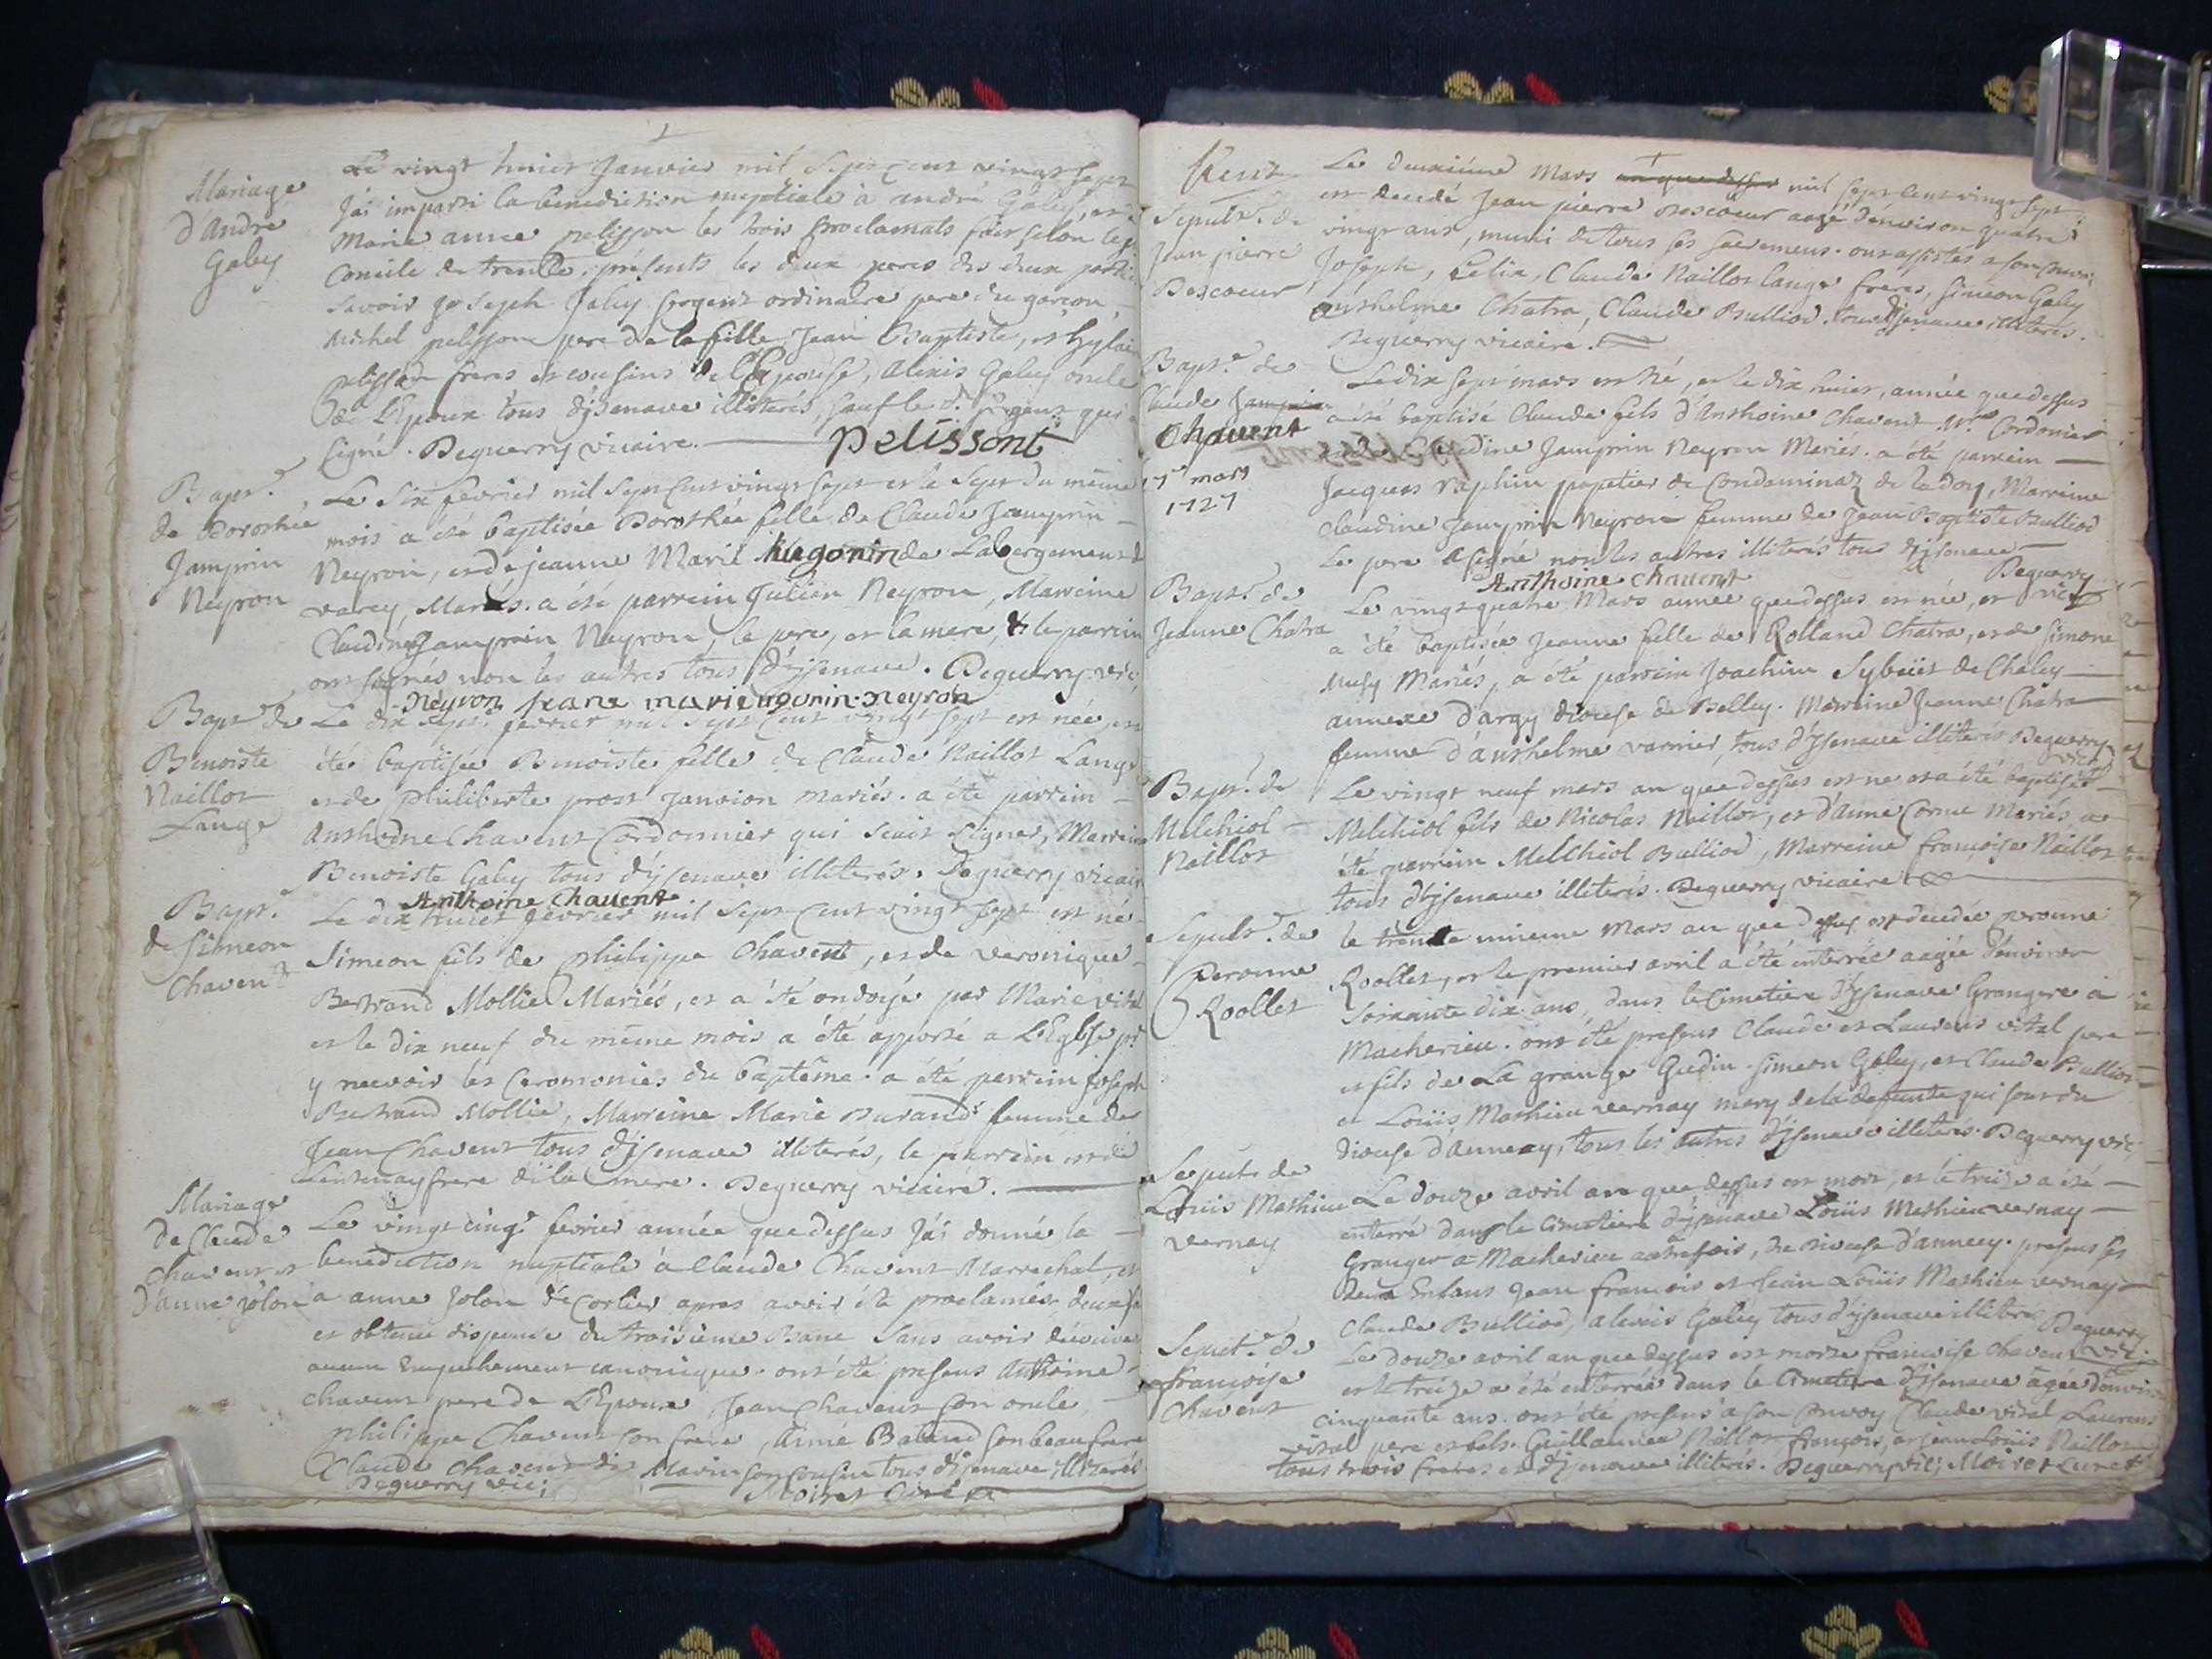 Mariage
d'André
Galey
Le vingt huict Janvier mil Sept Cent vingt Sept
J'ai imparti la benediction nuptiale à andré Galey, et
Marie anne pelisson les trois proclamats fais selon le
Concile de trente. présents les deux peres des deux parties
Savoir Joseph Galey sergent ordinaire pere du garcon
Michel pelisson pere de la fille, Jean Baptiste, et hylaire
pelisson freres et cousins de L'Epouse, Alexis Galey oncle
de L'Epoux tous d'jzenave illiterés, sauf le d. sergent qui a
signé. Deguerry vicaire. Pelissont
Bapt.
de Dorothée
Jamprin
Neyron
Le Six fevrier mil Sept Cent vingt Sept et le Sept du même
mois a été baptisée Dorothée fille de Claude Jamprin
Neyron, et de jeanne Marie hugonin de Labergement de
varey, Mariés. a été parrein Julien Neyron, Marreine
Claudine Jamprin Neyron, le pere, et la mere, & le parrein
ont signés non les autres tous d'jzenave. Deguerry vic;
Neyron jeane marie ugonin Neyron
Bapt de
Benoiste
Naillot
Lange
Le dix Sept fevrier mil Sept Cent vingt sept est née, et a
été baptisée Benoiste fille de Claude Naillot Lange
et de philiberte prost Janvion mariés. a été parrein
Anthoine Chavent Cordonnier qui scait signer, Marreine
Benoiste Galey tous d'yzenave illiterés. Deguerry vicaire
Anthoine Chavent
Bapt.
de Simeon
Chavent
Le dix huict fevrier mil Sept Cent vingt Sept est né
Simeon fils de philippe Chavent, et de veronique
Bertrand Mollie Mariés, et a été ondoyé par Marie vital
et le dix neuf du même mois a été apporté a L'Eglise pr
y recevoir les Ceremonies du baptême. a été parrein joseph
Bertrand Mollie, Marreine Marie Durand femme de
Jean Chavent tous d'jzenave illiterés, le parrein est de
Lentenay frere de la mere. Deguerry vicaire.
Mariage
de Claude
Chavent et
d'anne jolon
Le vingt cinq fevrier année que dessus J'ai donné la
benediction nuptiale à Claude Chavent Marrechal, et
a anne Jolon de Corlier apres avoir été proclamés deux fois
et obtenu dispense du troisieme Banc Sans avoir découvert
aucun Empechement canonique. ont été presens Anthoine
chavent pere de L'Epoux, Jean Chavent son oncle,
philippe Chavent son frere, Aimé Baland son beau frere
Claude chavent dit Marin son cousin tous d'jzenave illiterés
Deguerry vic; Moiret Curé
Le deuxiéme Mars mil sept cent vingt sept
Sepult. de
Jean pierre
Boscoeur
est decedé Jean pierre Boscoeur aagé d'environ quatre
vingt ans, muni de tous ses sacremens. ont assistés a son convoi
Joseph, Felix, Claude Naillot lange freres, simeon Galey
Anthelme Chatra, Claude Bulliod. tous d'jzenave illiterés.
Deguerry vicaire.
Bapt.e de
Claude
Chavent
17e mars
1727
Le dix sept mars est né, et le dix huict, année que dessus
a été baptisé Claude fils d'Anthoine Chavent Mre Cordonier
et de Claudine Jamprin Neyron Mariés. a été parrein
Jacques raphin papetier de Condaminaz de la doy, Marreine
Claudine Jamprin Neyron femme de Jean Baptiste Bulliod
Le pere a signé non les autres illiterés tous d'jzenave
Anthoine chavent Deguerry vic
Bapt. de
Jeanne Chatra
Le vingt quatre Mars année que dessus est née, et
a été baptisée Jeanne fille de Rolland Chatra, et de Simone
Musy Mariés, a été parrein Joachim Sybuët de Chaley
annexe d'argy diocese de Belley. Marreine Jeanne Chatra
femme d'anthelme varnier, tous d'yzenave illiterés Deguerry vic
Bapt. de
Melchiol
Naillot
Le vingt neuf mars an que dessus est né et a été baptisé
Melchiol fils de Nicolas Naillot, et d'anne Cornu Mariés, a
été parrein Melchiol Bulliod, Marreine françoise Naillot
tous d'jzenave illiterés. Deguerry vicaire
Sepult. de
Peronne
Roollet
le trente unieme Mars an que dessus est decedée peronne
Roollet, et le premier avril a été enterrée aagée d'environ
soixante dix ans, dans le Cimetiere d'jzenave Grangere a
Macherieu. ont été presens Claude et Laurens vital pere
et fils de La grange Gudin. simeon Galey, et Claude Bulliod
et Loüis Mathieu vernay mary de la defunte qui sont du
diocese d'annecy, tous les autres d'jzenave illiterés. Deguerry vic
Sepult. de
Louis Mathieu
vernay
Le douze avril an que dessus est mort, et le treize a été
enterré dans le Cimetiere d'jzenave Loüis Mathieu vernay
Granger a Macherieu autrefois, du diocese d'annecy. presens ses
deux Enfans Jean francois et Jean Loüis Mathieu vernay
Claude Bulliod, alexis Galey tous d'yzenave illiterés Deguerry vic.
Sepult. de
françoise
Chavent
Le douze avril an que dessus est morte francoise Chavent
et le treize a été enterrée dans le Cimetiere d'jzenave agée d'environ
cinquante ans. ont été presens a son Convoy Claude vital Laurens
vital pere et fils. Guillaume Naillot françois, et Jean Loüis Naillot
tous trois freres et d'jzenave illiterés. Deguerry vic; Moiret Curé